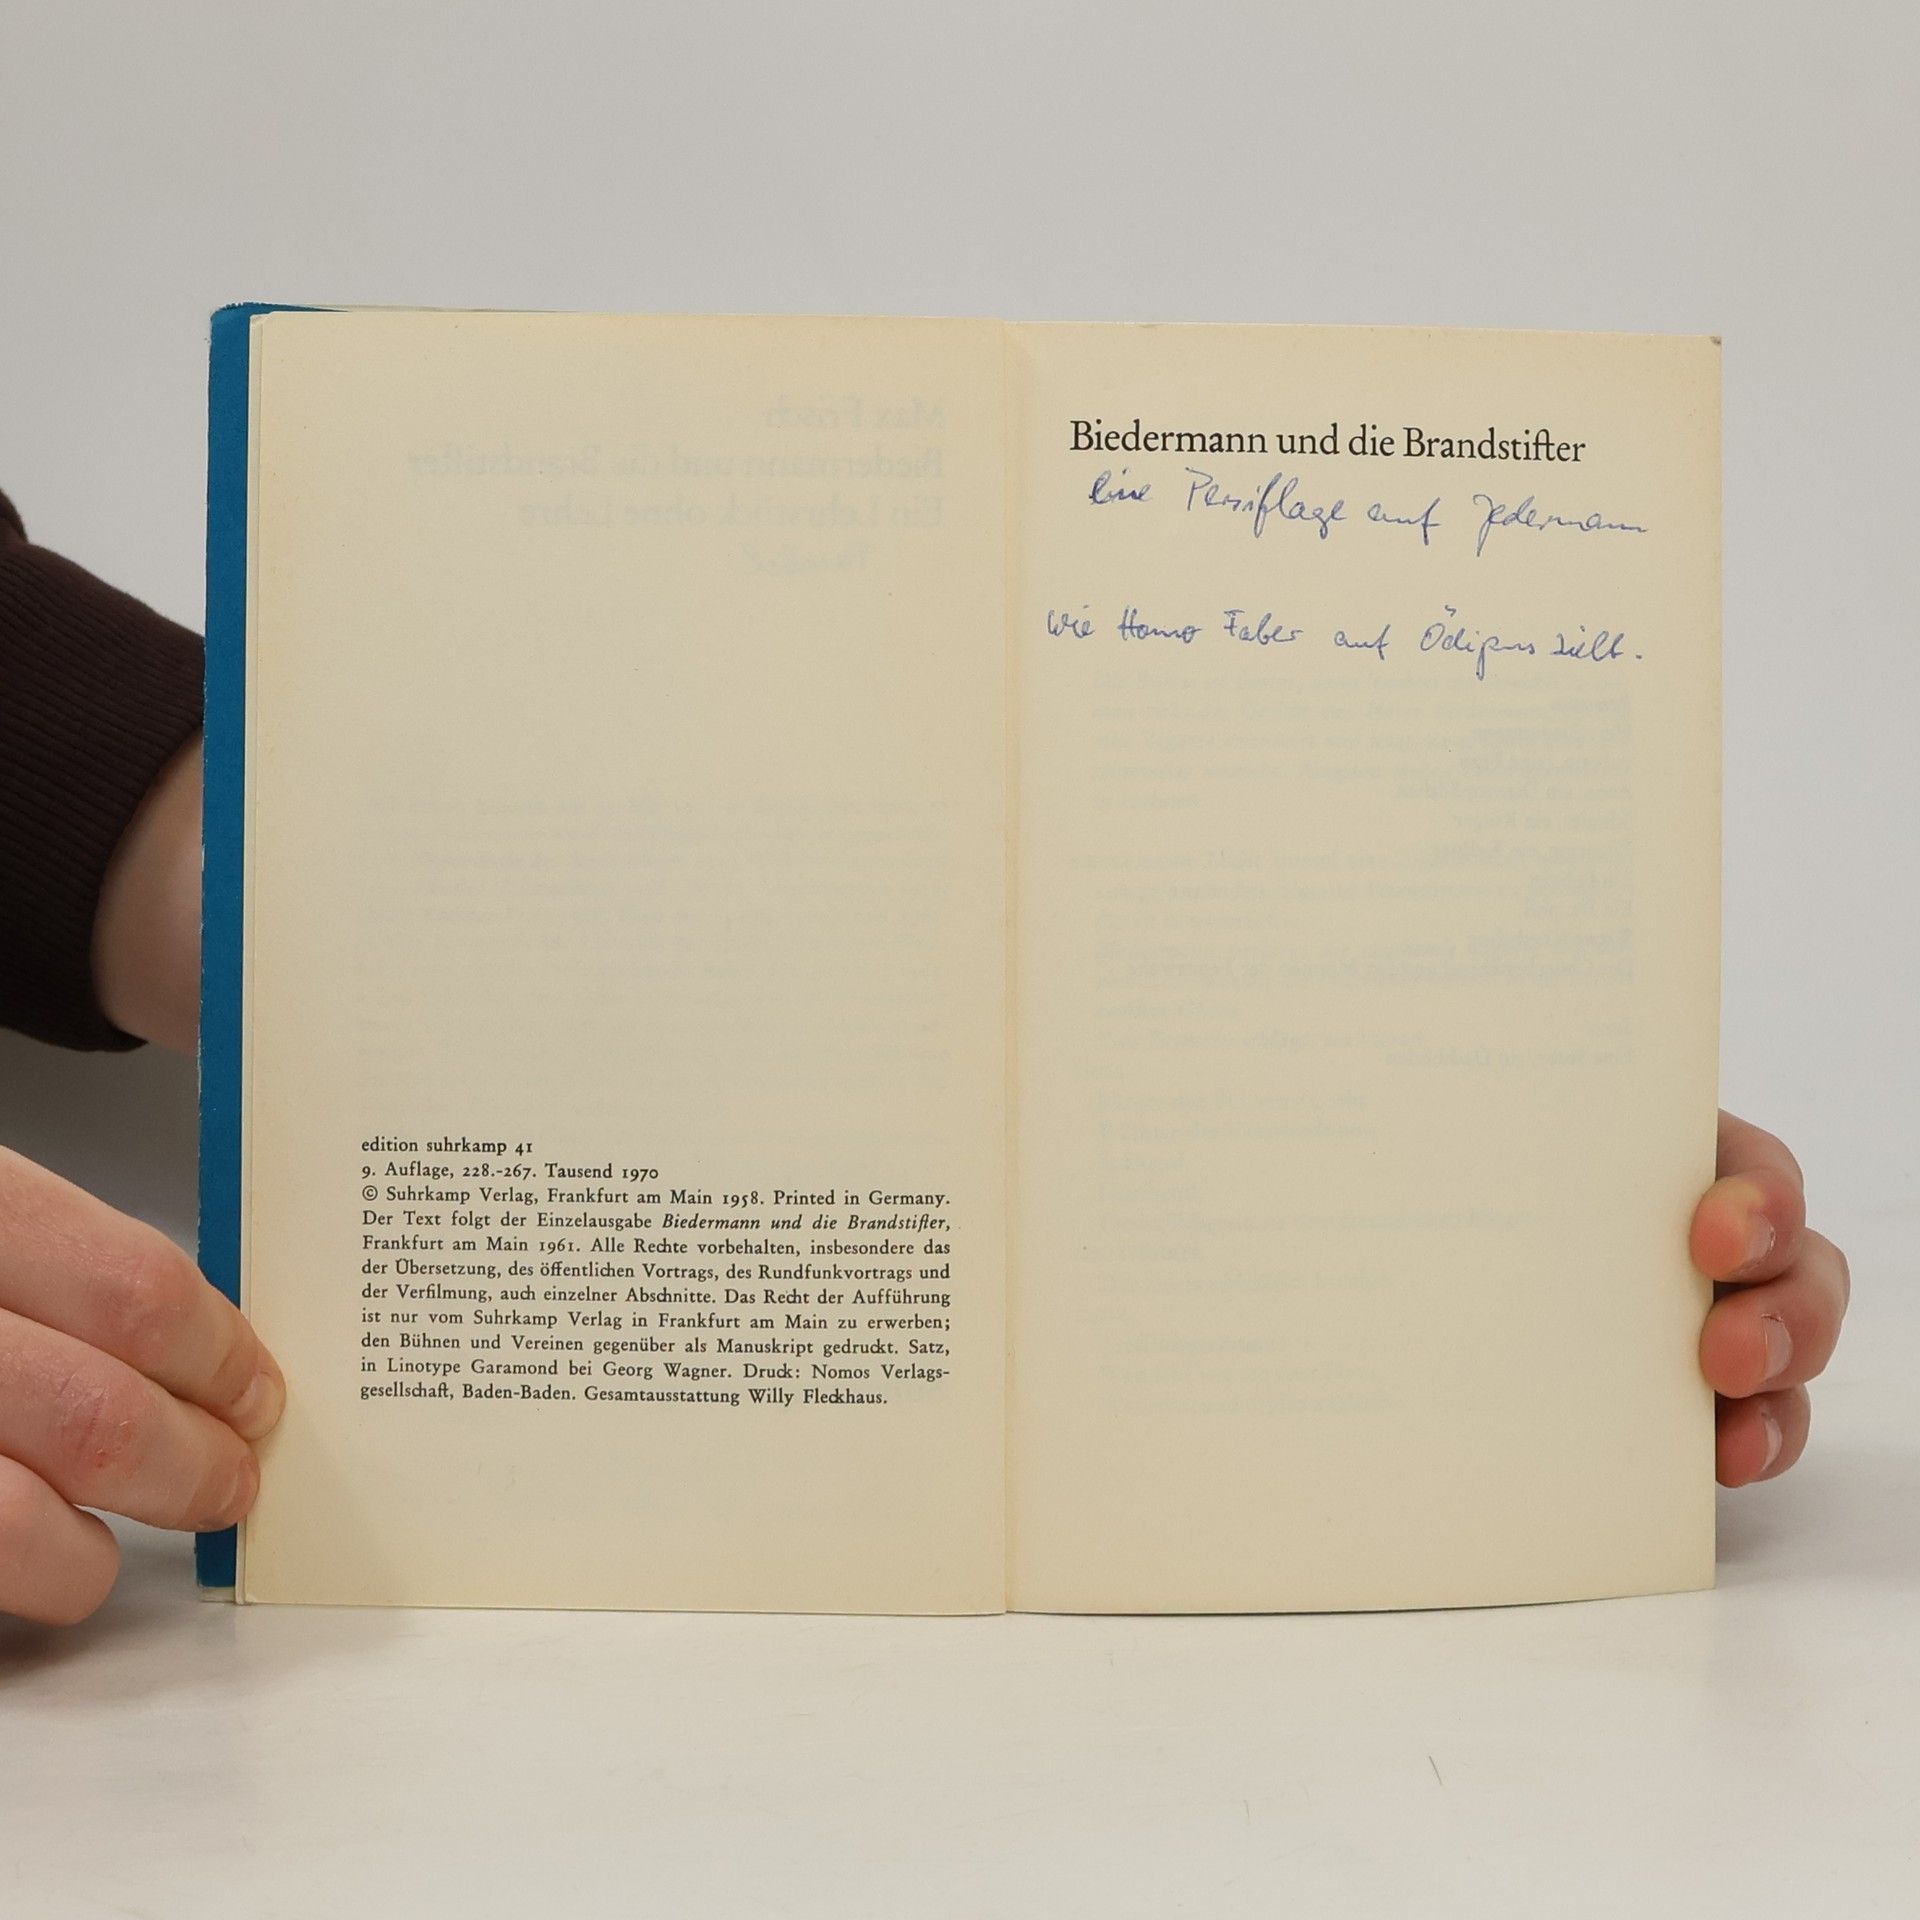 edition suhrkamp 41
9. Auflage, 228.-267. Tausend 1970
© Suhrkamp Verlag, Frankfurt am Main 1958. Printed in Germany.
Der Text folgt der Einzelausgabe Biedermann und die Brandstifter,
Frankfurt am Main 1961. Alle Rechte vorbehalten, insbesondere das
der Übersetzung, des öffentlichen Vortrags, des Rundfunkvortrags und
der Verfilmung, auch einzelner Abschnitte. Das Recht der Aufführung
ist nur vom Suhrkamp Verlag in Frankfurt am Main zu erwerben;
den Bühnen und Vereinen gegenüber als Manuskript gedruckt. Satz,
in Linotype Garamond bei Georg Wagner. Druck: Nomos Verlags-
gesellschaft, Baden-Baden. Gesamtausstattung Willy Fleckhaus.
Biedermann und die Brandstifter
Eine Persiflage auf Jedermann
wie Homo Faber auf Ödipus zielt.